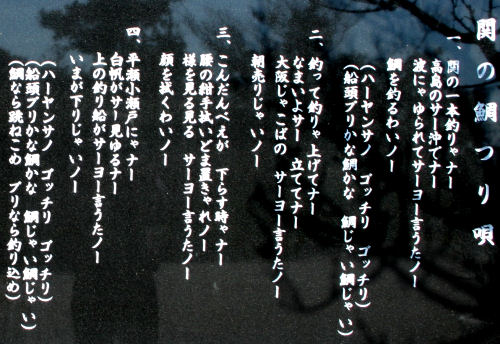 関の鯛つり唄
一、関の一本釣りャナー
高島のサー沖でナー
波にゃゆられてサーヨー言うたノー
鯛を釣るわいノー
(ハーヤンサノ ゴッチリ ゴッチリ)
(船頭ブリかな鯛かな 鯛じゃい鯛じゃい)
二、釣って釣りゃ上げてナー
なまいよサー 立ててナー
大阪じゃこばの サーヨー言うたノー
朝売りじゃいノー
三、こんだんべえが 下らす時ャナー
腰の紺手拭いどま置きゃれノー
様を見る見る サーヨー言うたノー
顔を拭くわいノー
四、平瀬小瀬戸にャナー
白帆がサー見ゆるナー
上の釣り船がサーヨー言うたノー
いまが下りじゃいノー
(ハーヤンサノ ゴッチリ ゴッチリ)
(船頭ブリかな鯛かな 鯛じゃい鯛じゃい)
(鯛なら跳ねこめ ブリなら釣り込め)